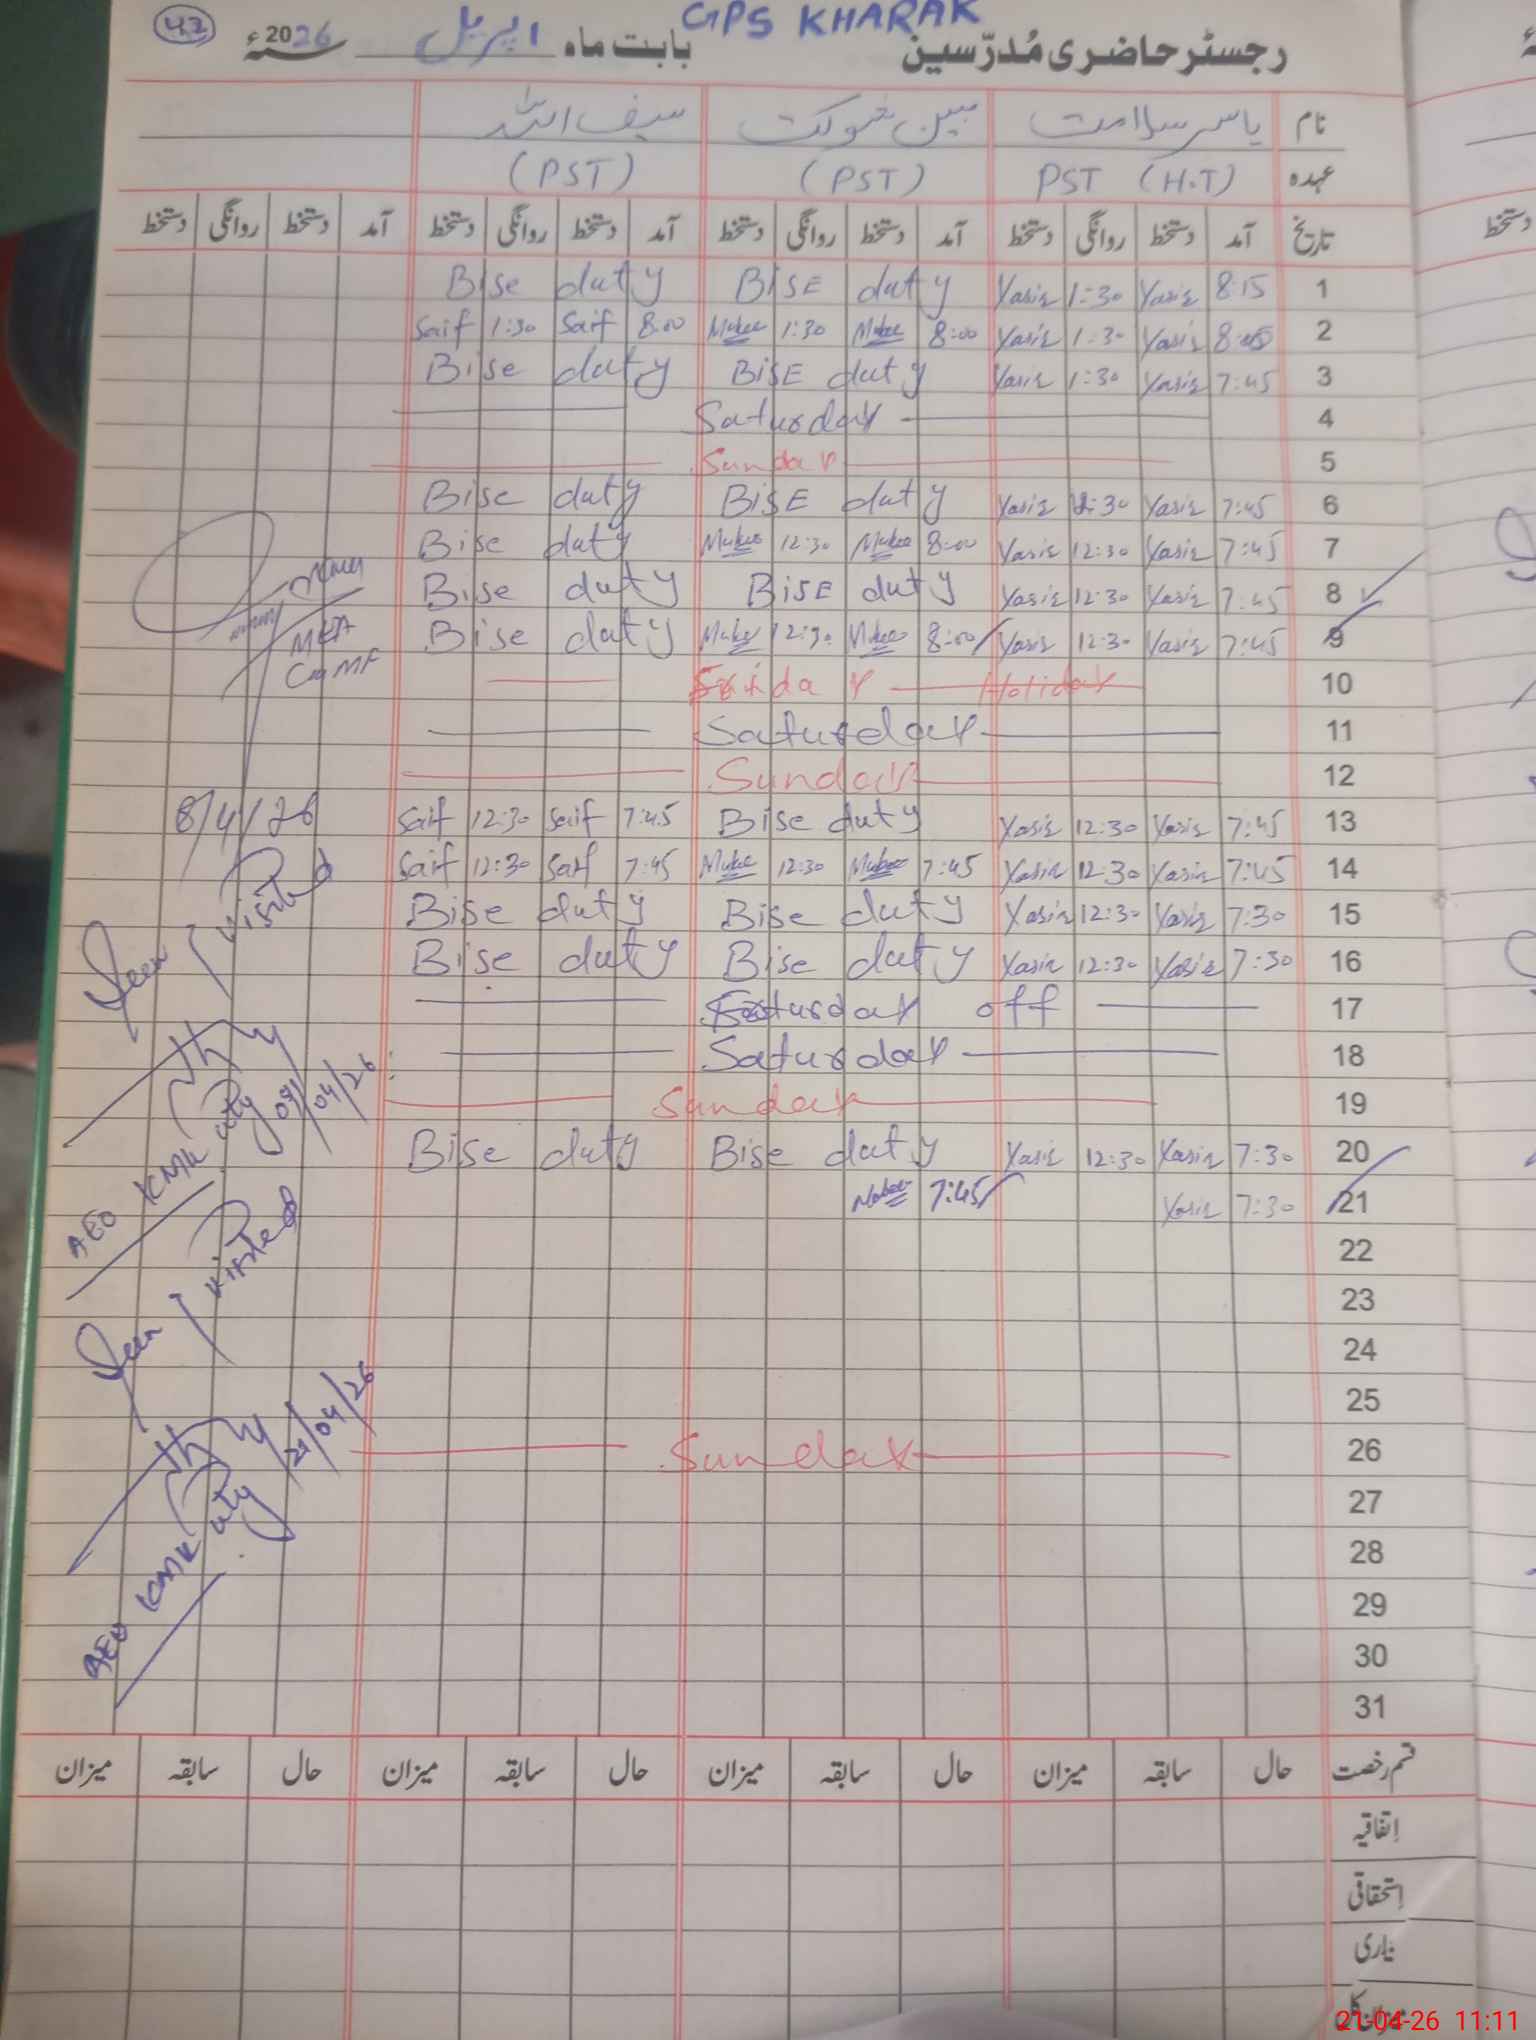 42 GPS KHARAK
رجسٹر حاضری مُدرّسین بابت ماہ اپریل 2026ء
نام یاسر سلامت مبین شوکت سیف اللہ
عہدہ PST (H.T) (PST) (PST)
تاریخ آمد دستخط روانگی دستخط آمد دستخط روانگی دستخط آمد دستخط روانگی دستخط آمد دستخط روانگی دستخط
Bise duty BISE duty Yasir 1:30 Yasir 8:15 1
Saif 1:30 Saif 8:00 Mubee 1:30 Mubee 8:00 Yasir 1:30 Yasir 8:05 2
Bise duty BISE duty Yasir 1:30 Yasir 7:45 3
Saturday 4
Sunday 5
Bise duty BISE duty Yasir 12:30 Yasir 7:45 6
Bise duty Mubee 12:30 Mubee 8:00 Yasir 12:30 Yasir 7:45 7
Bise duty BISE duty Yasir 12:30 Yasir 7:45 8
Bise duty Mubee 12:30 Mubee 8:00 Yasir 12:30 Yasir 7:45 9
Friday Holiday 10
Saturday 11
Sunday 12
Saif 12:30 Saif 7:45 Bise duty Yasir 12:30 Yasir 7:45 13
Saif 12:30 Saif 7:45 Mubee 12:30 Mubee 7:45 Yasir 12:30 Yasir 7:45 14
Bise duty Bise duty Yasir 12:30 Yasir 7:30 15
Bise duty Bise duty Yasir 12:30 Yasir 7:30 16
Saturday off 17
Saturday 18
Sunday 19
Bise duty Bise duty Yasir 12:30 Yasir 7:30 20
Mubee 7:45 Yasir 7:30 21
22
23
24
25
Sunday 26
27
28
29
30
31
MEA
8/4/26
Seen / Visited
09/04/26
AEO KMK city
Seen / Visited
21/04/26
AEO KMK city
قسم رخصت حال سابقہ میزان حال سابقہ میزان حال سابقہ میزان حال سابقہ میزان
اتفاقیہ
استحقاقی
بیماری
دستخط
21-04-26 11:11